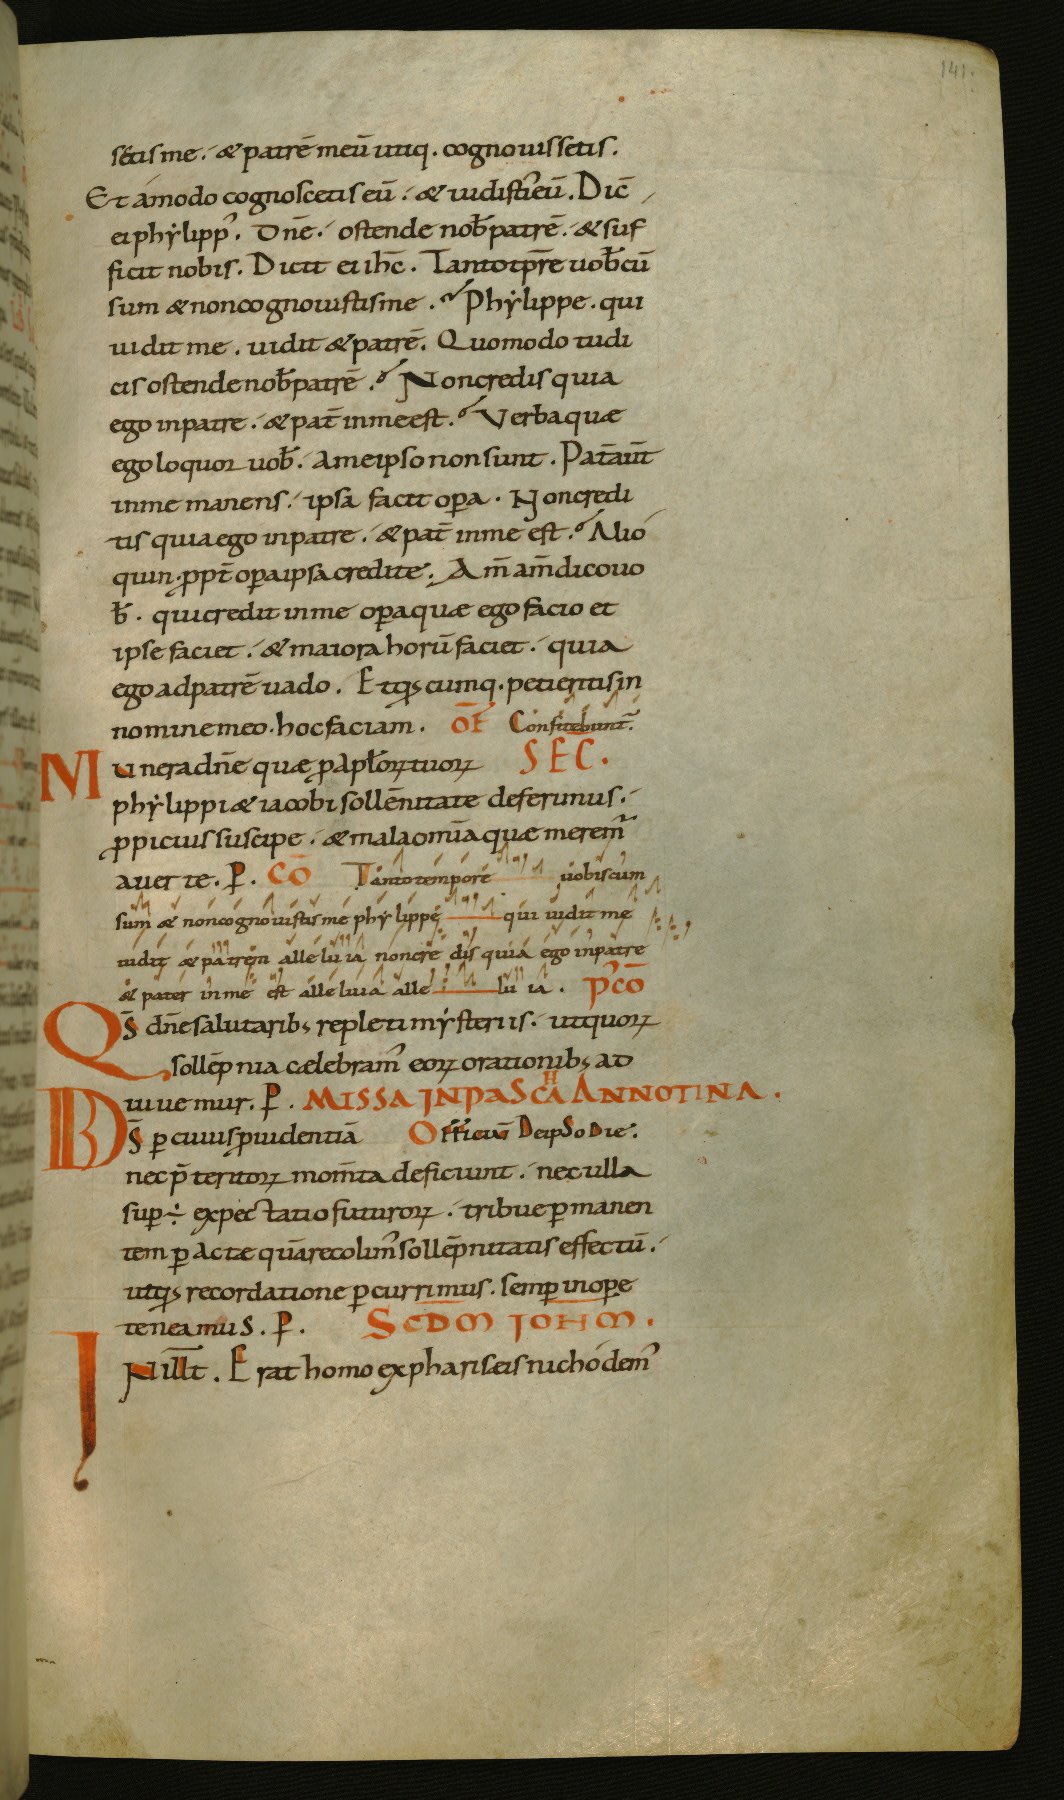 141.
sētis me. & patrē meū utiq. cognouissetis.
Et ámodo cognoscetis eū. & uidistis eū. Dic̄
ei phẏlipp'. Dn̄e. ostende nob̄ patrē. & suf
ficit nobis. Dicit ei ih̄c. Tanto tp̄re uob̄cū
sum & non cognouistis me. Phẏlippe. qui
uidit me. uidit & patrē. Quomodo tu di
cis ostende nob̄ patrē. Non credis quia
ego in patre. & pat̄ in me est. Verba quæ
ego loquor uob̄. a me ipso non sunt. Pat̄ aut̄
in me manens. ipsa facit opa. Non credi
tis quia ego in patre. & pat̄ in me est. Alio
quin. ppt̄ opa ipsa credite. Am̄ am̄ dico uo
b̄. qui credit in me opa quæ ego facio et
ipse faciet. & maiora horū faciet. quia
ego ad patrē uado. Et qscumq. petieritis in
nomine meo. hoc faciam. OF̄ Confitebunt̄.
Munera dn̄e quæ p aplōꝝ tuoꝝ SEC̄.
phẏlippi & iacobi sollēnitate deferimus.
ppicius suscipe. & mala om̄ia quæ meremʼ
auerte. P. CŌ Tanto tempore uobiscum
sum & non cognouistis me phẏlippe qui uidit me
uidit & patrem alleluia non credis quia ego in patre
& pater in me est alleluia alle lu ia. P̄CŌ
Qs̄ dn̄e salutarib; repleti mẏsteriis. ut quoꝝ
sollēpnia cælebramʼ eoꝝ orationib; ad
iuuemur. P. MISSA IN PASCHA ANNOTINA.
Ds̄ p cuius puidentiā Officiū De ipso die.
nec p̄teritoꝝ mom̄ta deficiunt. nec ulla
sup ÷ expectatio futuroꝝ. tribue pmanen
tem pactæ quā recolimʼ sollēpnitatis effectū.
ut qs recordatione pcurrimus. semp in ope
teneamus. P. SCDM IOHM.
IN ill̄t. Erat homo ex phariseis nichodemʼ